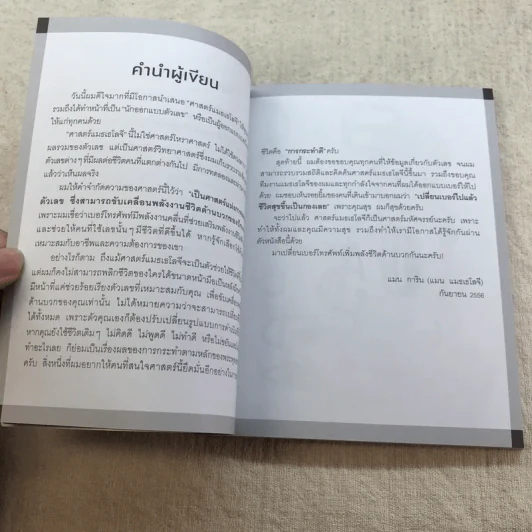 คำนำผู้เขียน
วันนี้ผมดีใจมากที่มีโอกาสนำเสนอ "ศาสตร์แมธเธโลจี"
รวมถึงได้ทำหน้าที่เป็น "นักออกแบบตัวเลข" หรือเป็นผู้ออกแบบ
ให้แก่ทุกคนด้วย
"ศาสตร์แมธเธโลจี" นี้ไม่ใช่ศาสตร์โหราศาสตร์ ไม่ได้ใช้
ผลรวมของตัวเลข แต่เป็นศาสตร์วิทยาศาสตร์ซึ่งผมเก็บรวบรวม
ตัวเลขต่างๆ ที่มีผลต่อชีวิตคนที่แตกต่างกันไป มีการทดลอง
แล้วว่าเห็นผลจริง
ผมให้คำจำกัดความของศาสตร์นี้ไว้ว่า "เป็นศาสตร์แห่ง
ตัวเลข ซึ่งสามารถขับเคลื่อนพลังงานชีวิตด้านบวกของ
เพราะผมเชื่อว่าเบอร์โทรศัพท์มีพลังงานคลื่นที่ช่วยเสริมพลัง
และช่วยให้คนที่ใช้เลขนั้นๆ มีชีวิตที่ดีขึ้นได้ หากรู้จักเลือก
เหมาะสมกับอาชีพและความต้องการของเขา
อย่างไรก็ตาม ถึงแม้ศาสตร์แมธเธโลจีจะเป็นตัวช่วยให้ชีวิต
แต่ผมก็คงไม่สามารถพลิกชีวิตของใครได้ขนาดหน้ามือเป็นหลังมือ
มีหน้าที่แค่ช่วยร้อยเรียงตัวเลขที่เหมาะสมกับคุณ เพื่อขับเคลื่อน
ด้านบวกของคุณเท่านั้น ไม่ได้หมายความว่าจะสามารถเปลี่ยน
ได้ทั้งหมด เพราะตัวคุณเองก็ต้องปรับเปลี่ยนรูปแบบการดำเนิน
หากคุณยังใช้ชีวิตเดิมๆ ไม่คิดดี ไม่พูดดี ไม่ทำดี หรือไม่ขยัน
ทำอะไรเลย ก็ย่อมเป็นเรื่องผลของการกระทำตามหลักของพระพุทธ
ครับ สิ่งหนึ่งที่ผมอยากให้คนที่สนใจศาสตร์นี้ยึดมั่นอีกอย่างใน
ชีวิตคือ "การกระทำดี" ครับ
สุดท้ายนี้ ผมต้องขอขอบคุณทุกคนที่ให้ข้อมูลเกี่ยวกับตัวเลข จนผม
สามารถรวบรวมสถิติและคิดค้นศาสตร์แมธเธโลจีนี้ขึ้นมา รวมถึงขอบคุณ
ทีมงานแมธเธโลจีของผมและทุกกำลังใจจากคนที่ผมได้ออกแบบเบอร์ให้ไป
ด้วย ผมชอบเห็นรอยยิ้มของคนที่เดินเข้ามาบอกผมว่า "เปลี่ยนเบอร์ไปแล้ว
ชีวิตสุขขึ้นเป็นกองเลย" เพราะคุณสุข ผมก็สุขด้วยครับ
จะว่าไปแล้ว ศาสตร์แมธเธโลจีก็เป็นศาสตร์มหัศจรรย์นะครับ เพราะ
ทำให้ทั้งผมและคุณมีความสุข รวมถึงทำให้เรามีโอกาสได้รู้จักกันผ่าน
ตัวหนังสือนี้ด้วย
มาเปลี่ยนเบอร์โทรศัพท์เพิ่มพลังชีวิตด้านบวกกันนะครับ!
แมน การิน (แมน แมธเธโลจี)
กันยายน 2556